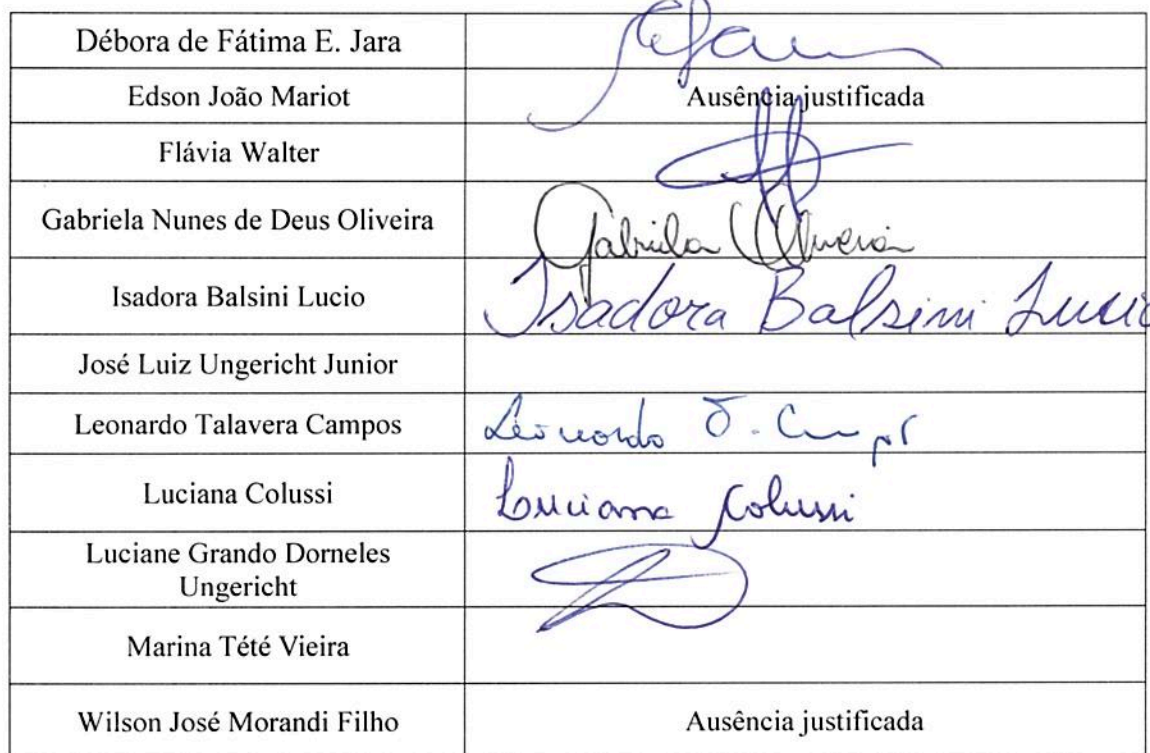 Débora de Fátima E. Jara
Edson João Mariot Ausência justificada
Flávia Walter
Gabriela Nunes de Deus Oliveira Gabriela Oliveira
Isadora Balsini Lucio Isadora Balsini Lucio
José Luiz Ungericht Junior
Leonardo Talavera Campos Leonardo T. Campos
Luciana Colussi Luciana Colussi
Luciane Grando Dorneles
Ungericht
Marina Tété Vieira
Wilson José Morandi Filho Ausência justificada